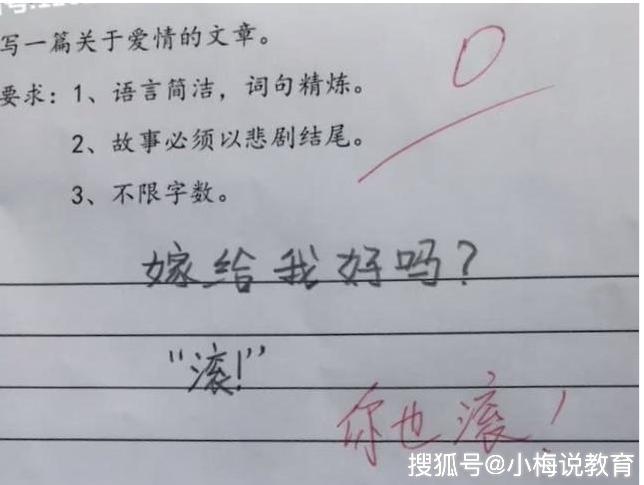 写一篇关于爱情的文章。
0
要求：1、语言简洁，词句精炼。
2、故事必须以悲剧结尾。
3、不限字数。
嫁给我好吗？
“滚！”
你也滚！
搜狐号@小梅说教育